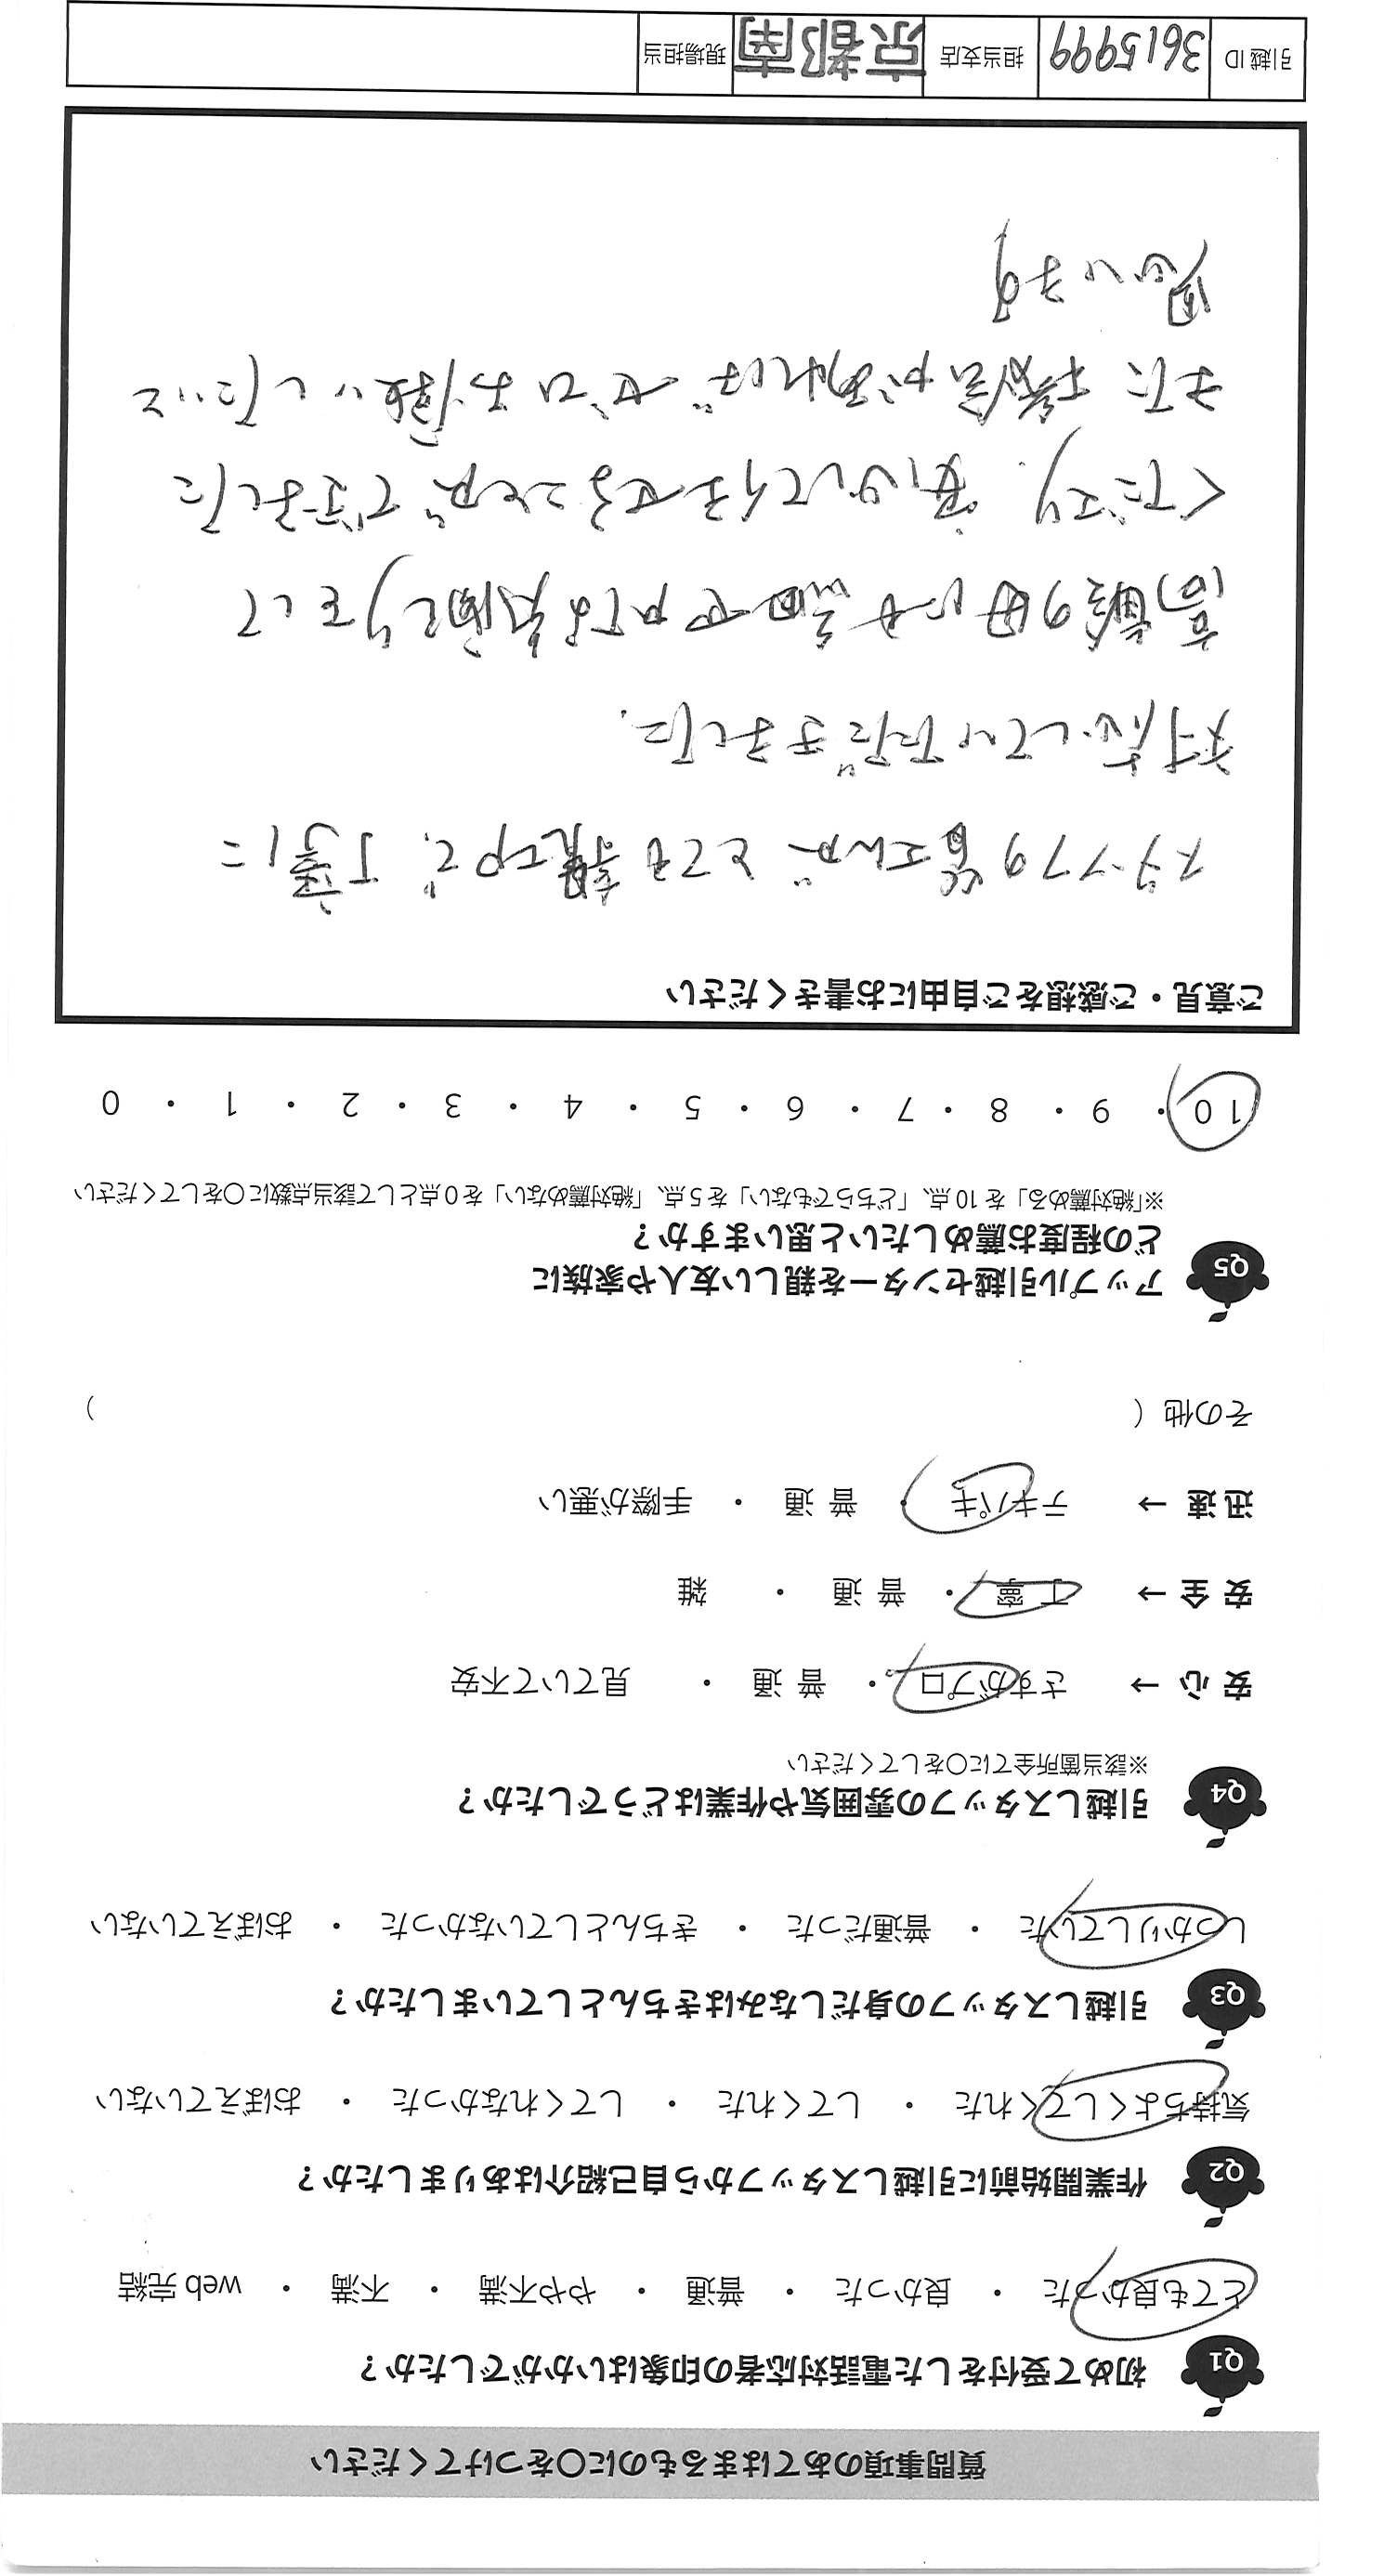 質問事項のあてはまるものに○をつけてください
Q1 初めて受付をした電話対応者の印象はいかがでしたか？
とても良かった ・ 良かった ・ 普通 ・ やや不満 ・ 不満 ・ web 完結
Q2 作業開始前に引越しスタッフから自己紹介はありましたか？
気持ちよくしてくれた ・ してくれた ・ してくれなかった ・ おぼえていない
Q3 引越しスタッフの身だしなみはきちんとしていましたか？
しっかりしていた ・ 普通だった ・ きちんとしていなかった ・ おぼえていない
Q4 引越しスタッフの雰囲気や作業はどうでしたか？
※該当箇所全てに○をしてください
安 心 → さすがプロ ・ 普 通 ・ 見ていて不安
安 全 → 丁 寧 ・ 普 通 ・ 雑
迅 速 → テキパキ ・ 普 通 ・ 手際が悪い
その他 （ ）
Q5 アップル引越センターを親しい友人や家族に
どの程度お薦めしたいと思いますか？
※「絶対薦める」を 10 点、「どちらでもない」を 5 点、「絶対薦めない」を 0 点として該当点数に○をしてください
10 ・ 9 ・ 8 ・ 7 ・ 6 ・ 5 ・ 4 ・ 3 ・ 2 ・ 1 ・ 0
ご意見・ご感想をご自由にお書きください
スタッフの皆さんが とても親切で、丁寧に
対応していただきました.
高齢の母にも細やかな気配りをして
くださり. 安心して任せることができました
また機会があれば ぜひお願いしたいと
思います
引越 ID 3615999 担当支店 京都南 現場担当